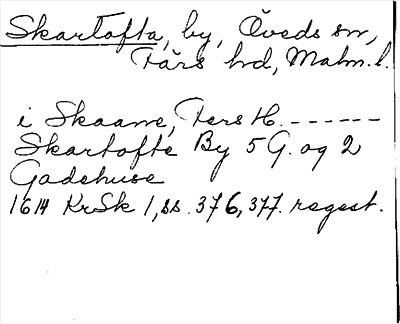 Skartofta, by, Öveds sn,
Färs hd, Malm. l.
i Skaane, Fers H. ------
Skartofte By 5 G. og 2
Gadehuse
1614 KrSk 1, ss. 376, 377. regest.